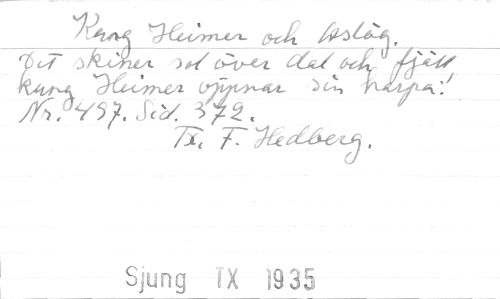 Kung Heimer och Aslög.
Det skiner sol över dal och fjäll,
kung Heimer öppnar sin harpa:
Nr. 497. Sid. 372.
Tx, F. Hedberg.
Sjung IX 1935